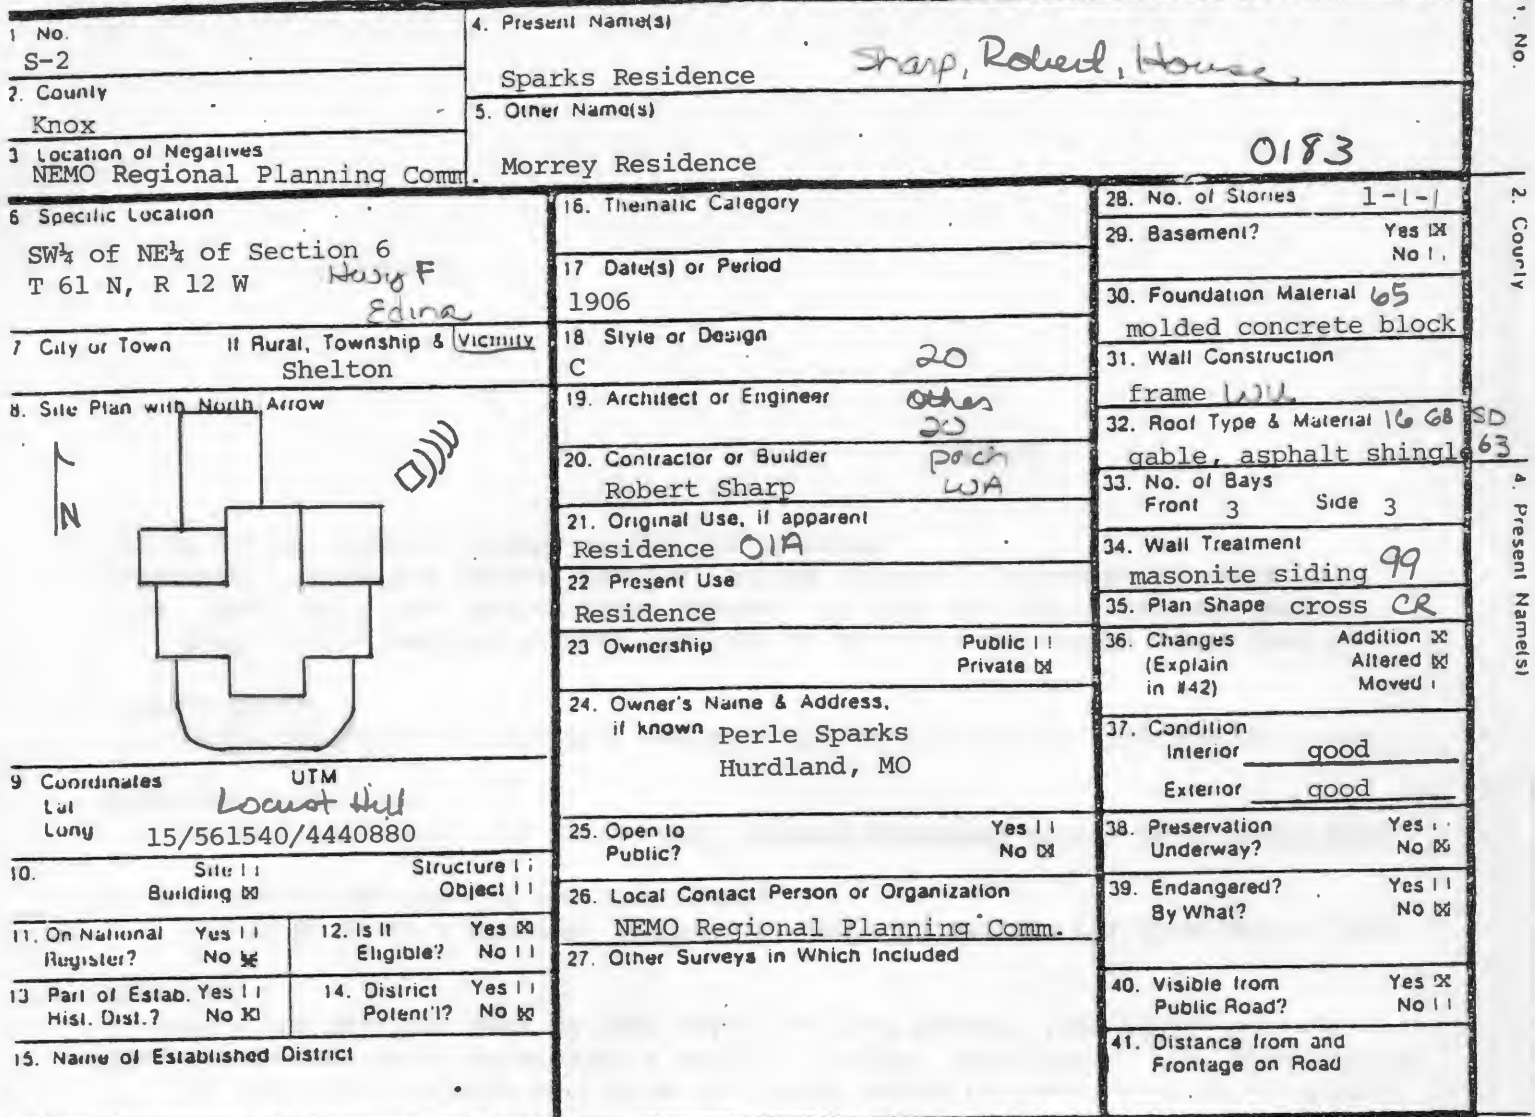 1 No.
S-2
2. County
Knox
3 Location of Negatives
NEMO Regional Planning Comm.
4. Present Name(s)
Sparks Residence Sharp, Robert, House
5. Other Name(s)
Morrey Residence 0183
6 Specific Location
SW¼ of NE¼ of Section 6
T 61 N, R 12 W Hwy F
Edina
7 City or Town If Rural, Township & Vicinity
Shelton
8. Site Plan with North Arrow
N
9 Coordinates UTM
Lat Locust Hill
Long 15/561540/4440880
10. Site Structure
Building ☒ Object
11. On National Yes
Register? No ☒
12. Is It Yes ☒
Eligible? No
13 Part of Estab. Yes
Hist. Dist.? No ☒
14. District Yes
Potent'l? No ☒
15. Name of Established District
16. Thematic Category
17 Date(s) or Period
1906
18 Style or Design
C 20
19. Architect or Engineer other
20
20. Contractor or Builder porch
Robert Sharp WA
21. Original Use, if apparent
Residence 01A
22 Present Use
Residence
23 Ownership Public
Private ☒
24. Owner's Name & Address,
if known Perle Sparks
Hurdland, MO
25. Open to Yes
Public? No ☒
26. Local Contact Person or Organization
NEMO Regional Planning Comm.
27. Other Surveys in Which Included
28. No. of Stories 1-1-1
29. Basement? Yes ☒
No
30. Foundation Material 65
molded concrete block
31. Wall Construction
frame WU
32. Roof Type & Material 16 68 SD
gable, asphalt shingle 63
33. No. of Bays
Front 3 Side 3
34. Wall Treatment
masonite siding 99
35. Plan Shape cross CR
36. Changes Addition ☒
(Explain Altered ☒
in #42) Moved
37. Condition
Interior good
Exterior good
38. Preservation Yes
Underway? No ☒
39. Endangered? Yes
By What? No ☒
40. Visible from Yes ☒
Public Road? No
41. Distance from and
Frontage on Road
1. No.
2. County
4. Present Name(s)